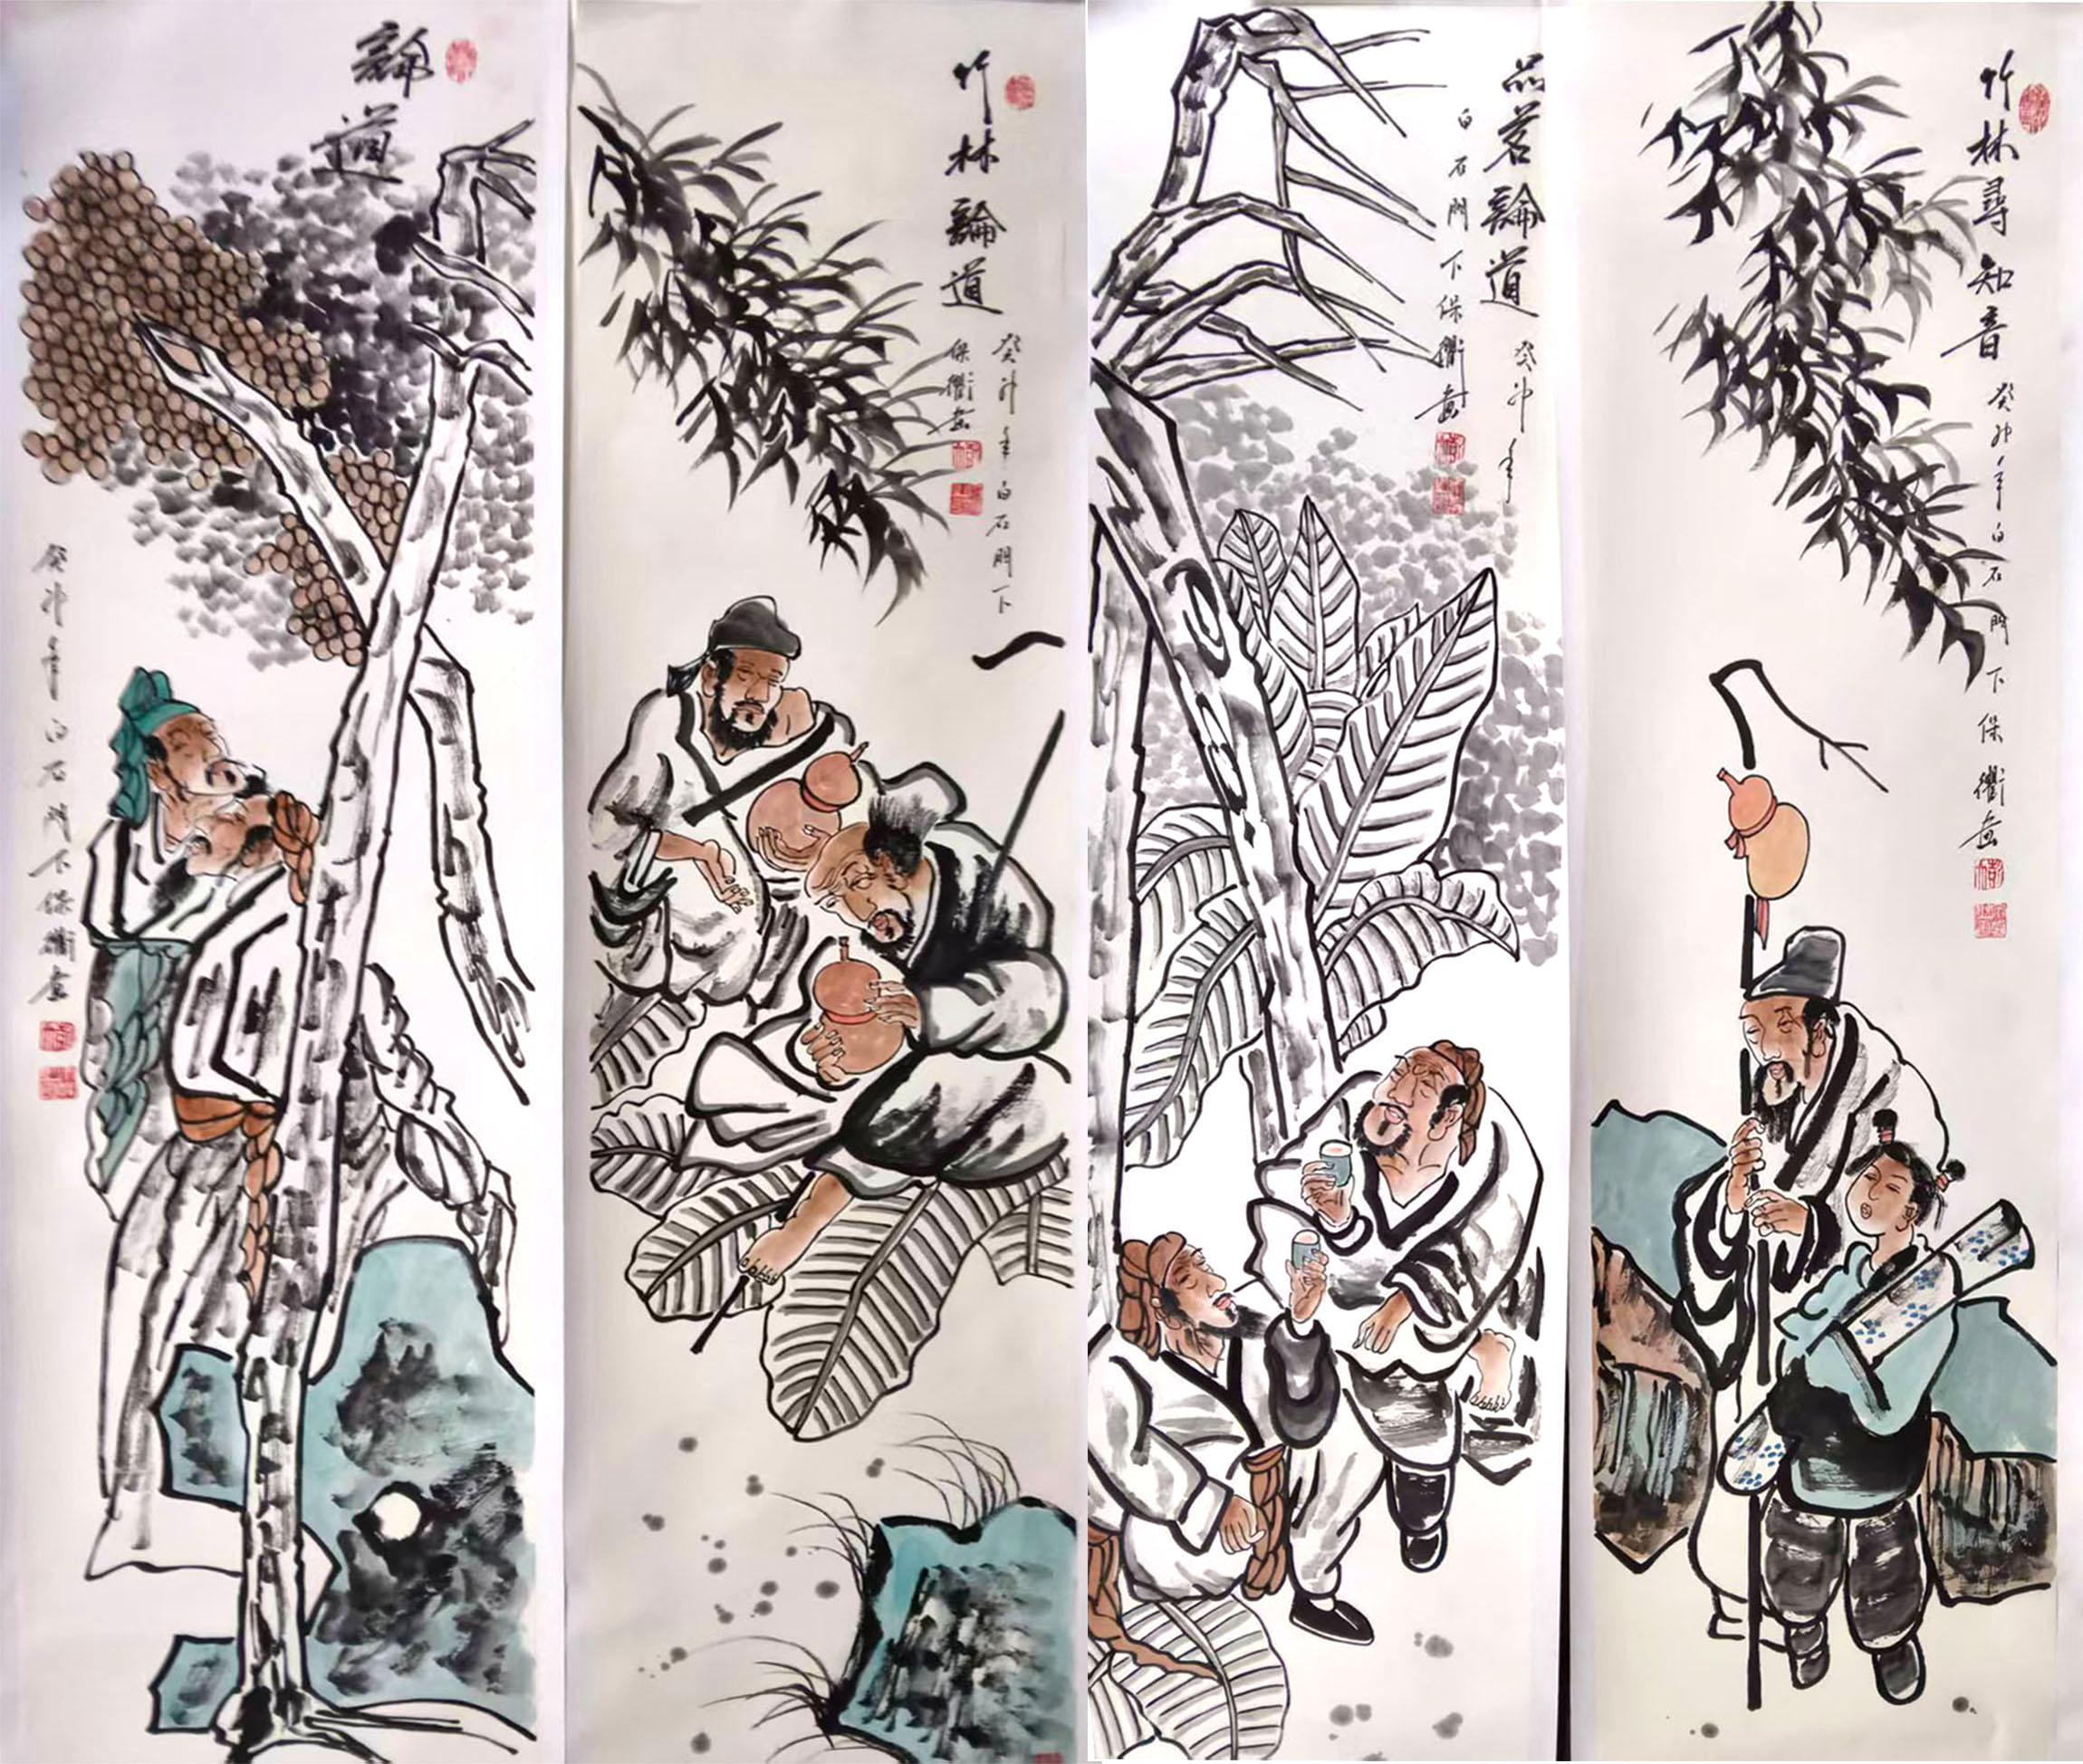 論道
癸卯年白石門下保衢画
竹林論道
癸卯年白石門下
保衢画
品茗論道
癸卯年
白石門下保衢画
竹林尋知音
癸卯年白石門下保衢画